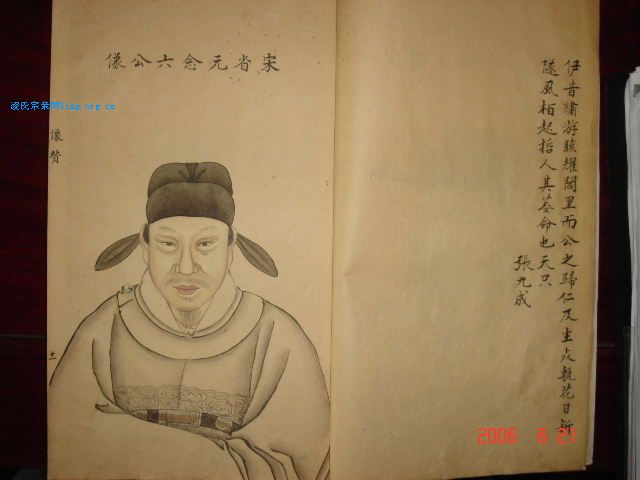 宋省元念六公像
凌氏宗亲网ling.org.cn
像赞
伊昔繡游駭耀閭里而公之歸仁及生
隨風栢起哲人其萎命也天只
張九成
2006 8 21